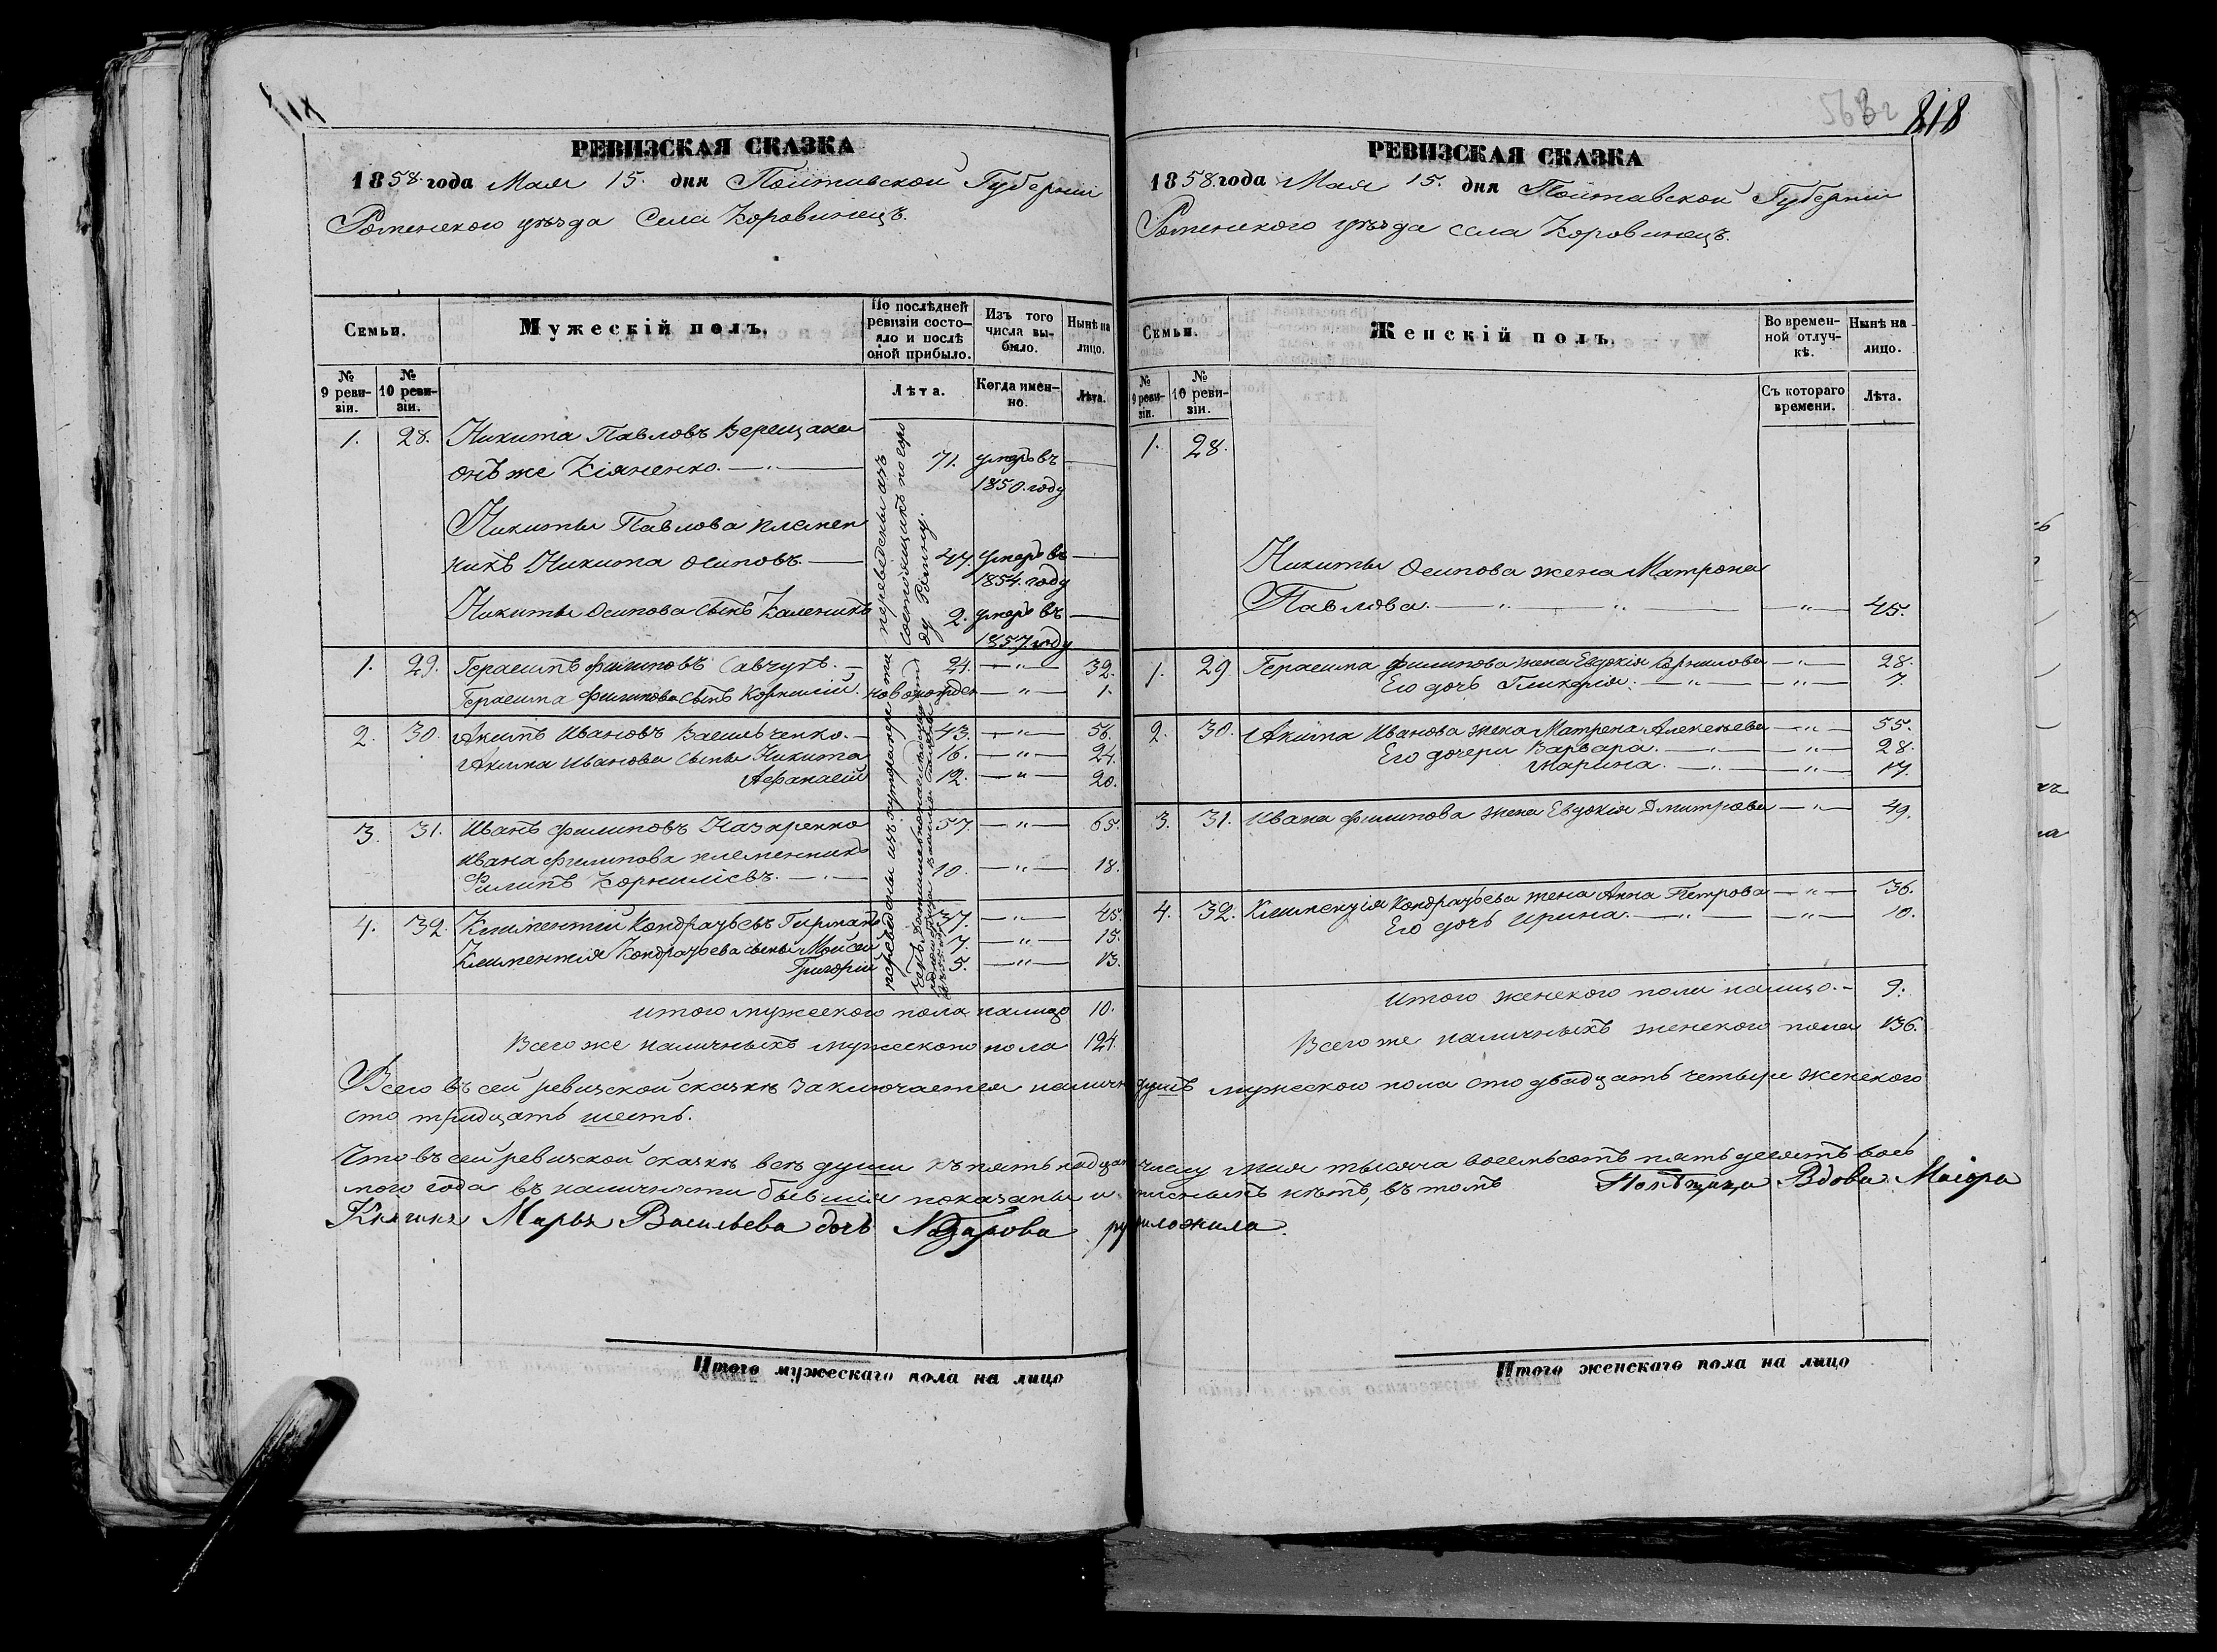 РЕВИЗСКАЯ СКАЗКА
1858 года Мая 15. дня Полтавской Губерніи
Роменского уѣзда Села Коровинецъ.
Семьи.
Мужескій полъ.
По послѣдней ревизіи состояло и послѣ оной прибыло.
Изъ того числа выбыло.
Нынѣ на лицо.
№ 9 ревизіи.
№ 10 ревизіи.
Лѣта.
Когда именно.
Лѣта.
1. 28. Никита Павловъ Верещака
онъ же Кіяненко. —"— 71. умеръ въ —
1850. году
Никиты Павлова племен
никъ Никита Осиповъ. — 47. умеръ въ —
1854. году
Никиты Осипова сынъ Каленикъ 2. умеръ въ —
1857 году
переведены изъ
состоящихъ по горо
ду Ромну.
1. 29. Герасимъ Филиповъ Савчукъ. — 24. —"— 32.
Герасима Филипова сынъ Корнилій. новорожден —"— 1.
2. 30. Акимъ Ивановъ Василъченко. — 43. —"— 56.
Акима Иванова сыны Никита 16. —"— 24.
Афанасій 12. —"— 20.
3. 31. Иванъ Филиповъ Назаренко 57. —"— 65.
Ивана Филипова племенникъ
Филипъ Корниліевъ. —"— 10. —"— 18.
4. 32. Климентій Кондратьевъ 37. —"— 45.
Климентія Кондратьева сыны Мойсей 7. —"— 15.
Григорій 5. —"— 13.
переведены изъ хутора
итого мужеского пола налицо 10.
Всего же наличныхъ мужеского пола 124.
РЕВИЗСКАЯ СКАЗКА
818
1858. года Мая 15. дня Полтавской Губерніи
Роменского уѣзда села Коровинецъ.
Семьи.
Женскій полъ.
Во временной отлучкѣ.
Нынѣ на лицо.
№ 9 ревизіи.
№ 10 ревизіи.
Съ котораго времени.
Лѣта.
1. 28.
Никиты Осипова жена Матрона
Павлова. —"— —"— —"— 45.
1. 29. Герасима Филипова жена Евдокія Корнилова —"— 28.
Его дочь Гликерія. —"— —"— 7.
2. 30. Акима Иванова жена Матрена Алексѣева —"— 55.
Его дочери Варвара. —"— —"— 28.
Марина. —"— —"— 17.
3. 31. Ивана Филипова жена Евдокія Дмитрова —"— 49.
4. 32. Климентія Кондратьева жена Анна Петрова —"— 36.
Его дочь Ирина. —"— —"— 10.
итого женского пола налицо. — 9.
Всего же наличныхъ женского пола 136.
Всего въ сей ревизской сказкѣ заключается наличн душъ мужеского пола сто двадцать четыре женского
сто тридцать шесть.
Что въ сей ревизской сказкѣ всѣ души къ пятьнадцат числу мая тысяча восемьсотъ пятьдесятъ вось
мого года въ наличности бывшія показаны и нѣтъ, въ томъ Помѣщица Вдова Маіора
Княжна Марья Васильева дочь Назарова руку приложила.
Итого мужескаго пола на лицо
Итого женскаго пола на лицо